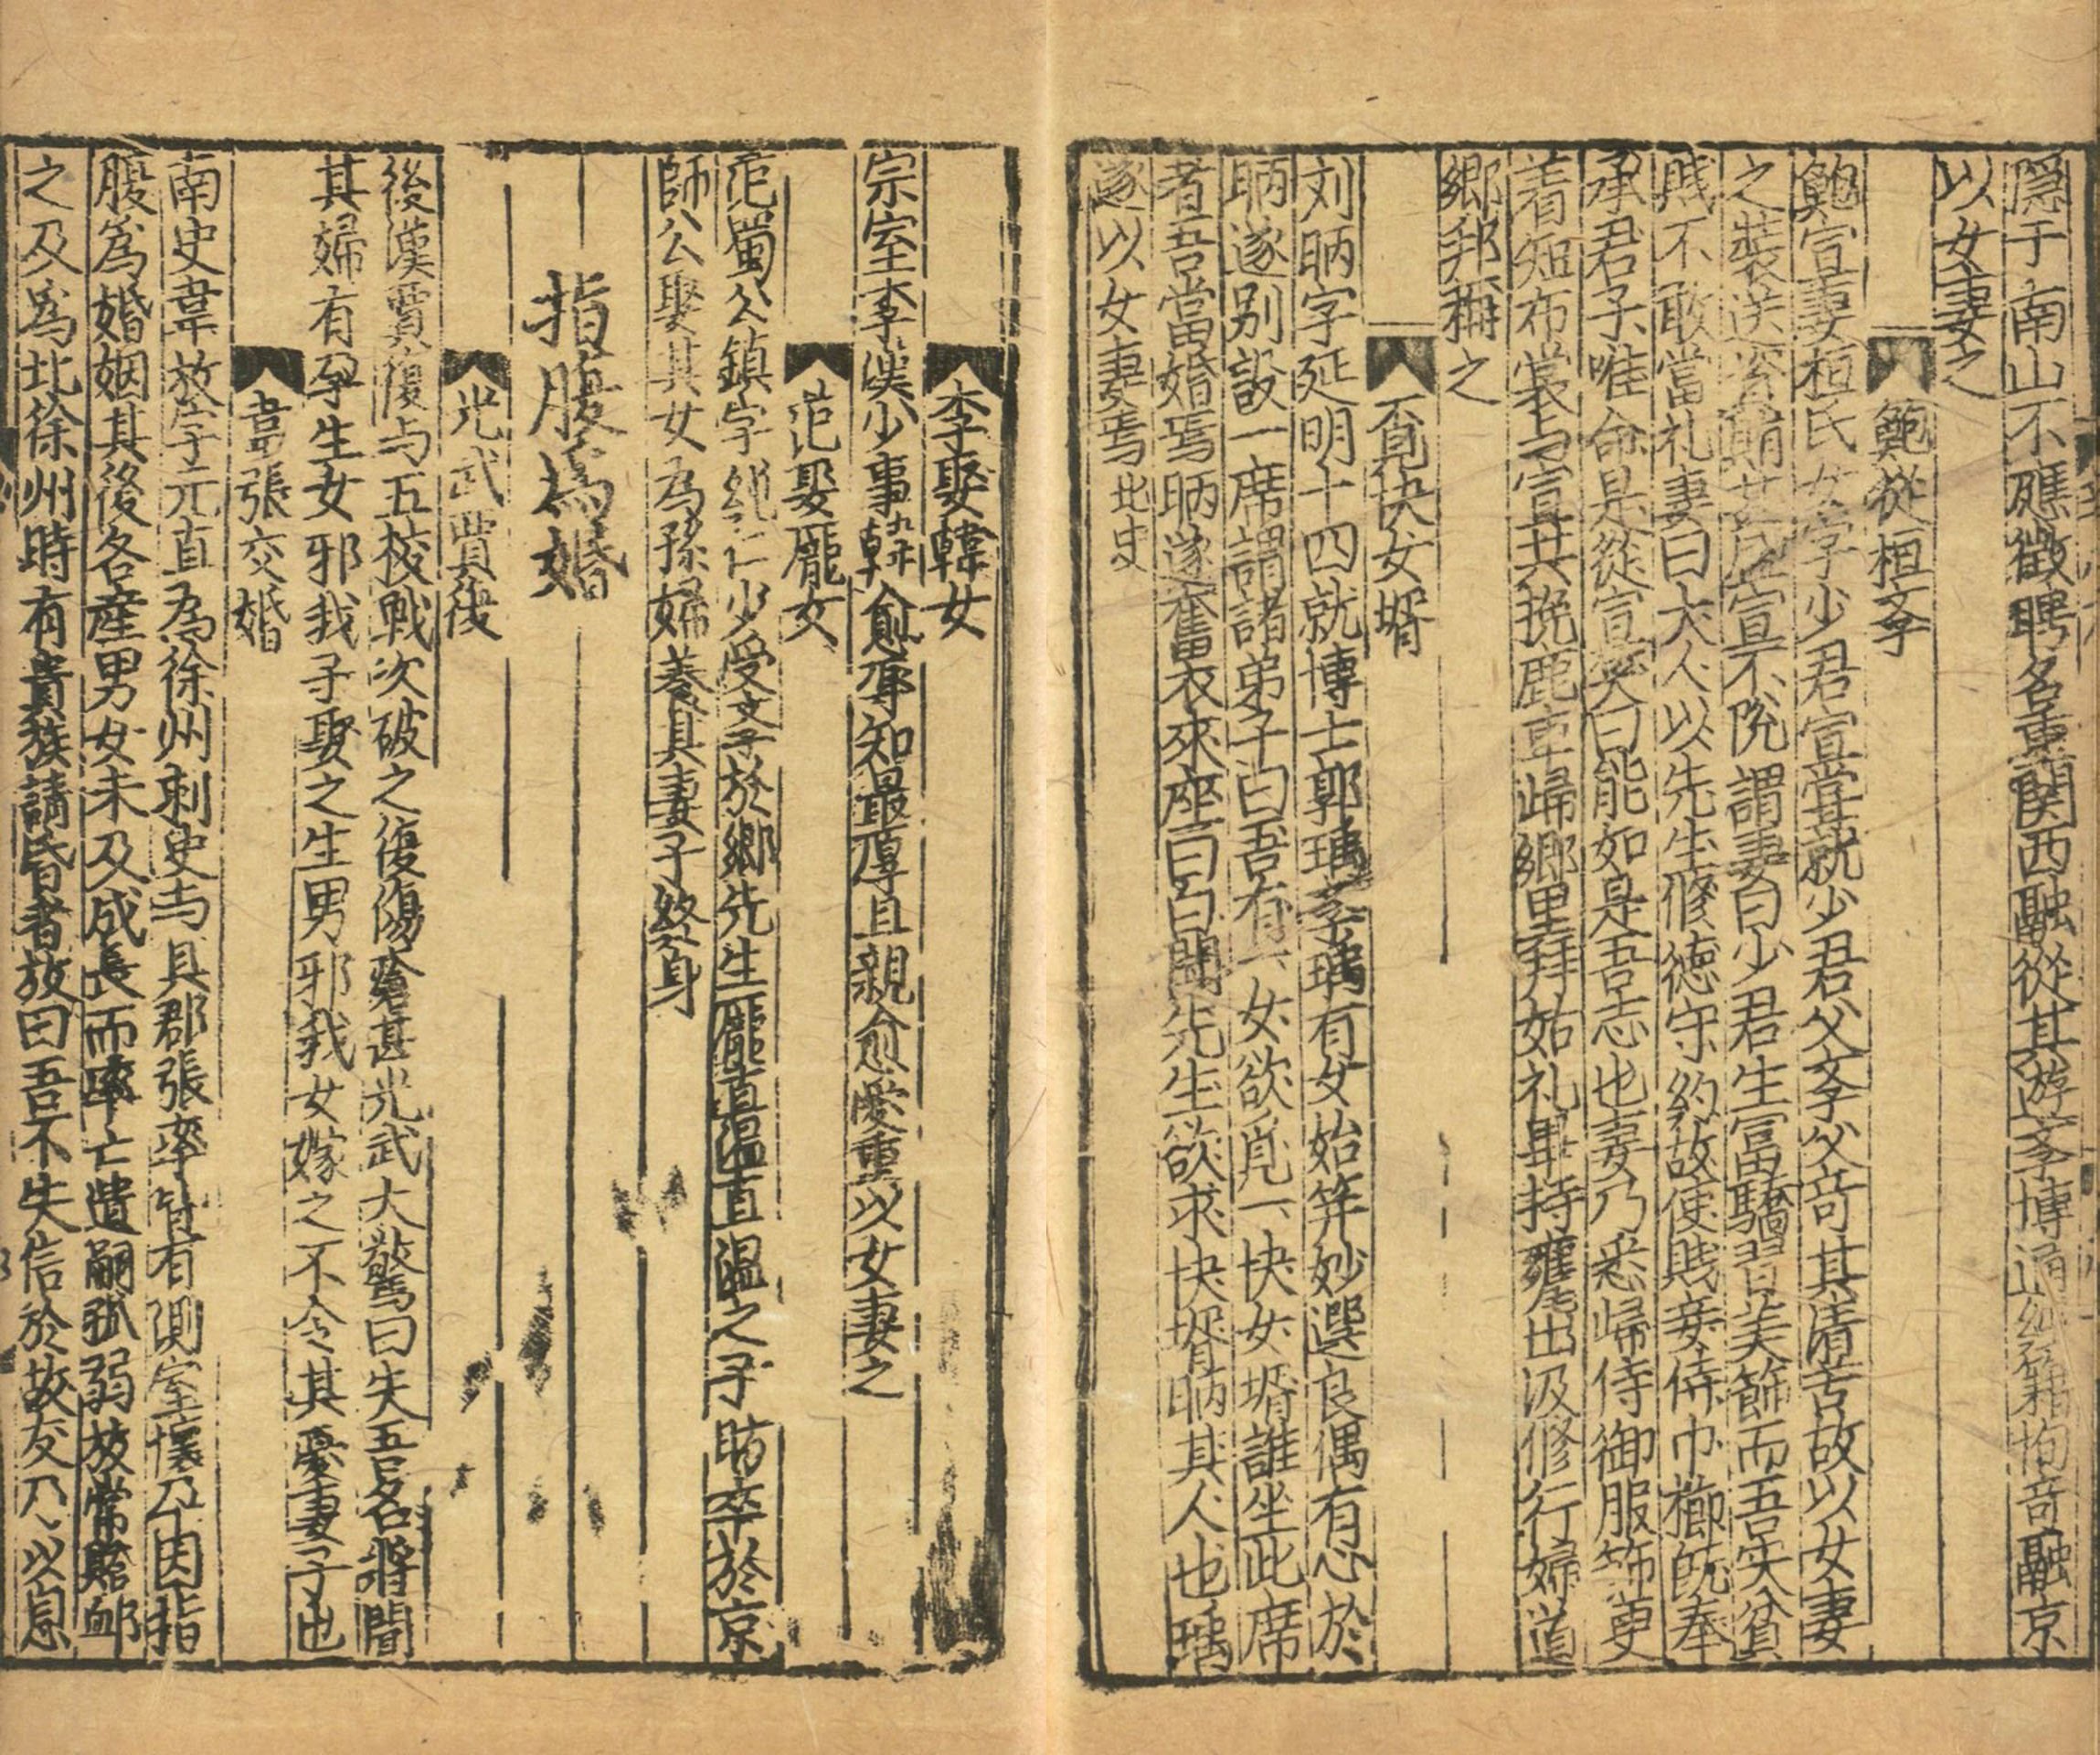 隱于南山不應徵聘名重関西融從其遊斈博通經籍恂竒融京
以女妻之
鮑從桓斈
鮑宣妻桓氏女字少君宣甞就少君父斈父竒其清苦故以女妻
之裝送資賄甚盛宣不恱謂妻曰少君生富驕習美飾而吾实貧
賎不敢當礼妻曰大人以先生修德守約故使賎妾侍巾櫛旣奉
承君子唯命是從宣笑曰能如是吾志也妻乃悉歸侍御服飾更
着短布裳与宣共挽鹿車歸郷里拜姑礼畢持甕出汲修行婦道
郷邦稱之
覔快女壻
刘昞字延明十四就博士郭瑀斈瑀有女始笄妙選良偶有心於
昞遂别設一席謂諸弟子曰吾有一女欲覔一快女壻誰坐此席
者吾當婚焉昞遂奮衣來座曰向聞先生欲求快壻昞其人也瑀
遂以女妻焉北史
李娶韓女
宗室李漢少事韓愈厚知最厚且親愈愛重以女妻之
范娶龐女
范蜀公鎮字純仁少受文于於郷先生龐直温直温之子昉卒於京
師公娶其女為孫婦養其妻子終身
指腹為婚
光武賈後
後漢賈復与五校戦次破之復傷瘡甚光武大驚曰失吾名將聞
其婦有孕生女邪我子娶之生男邪我女嫁之不令其憂妻子也
韋張交婚
南史韋放字元直為徐州刺史与具郡張率皆有側室懷孕因指
腹爲婚姻其後各産男女未及成長而率亡遺嗣孤弱放常贍䘏
之及爲北徐州時有貴族請昏者放曰吾不失信於故友乃以息